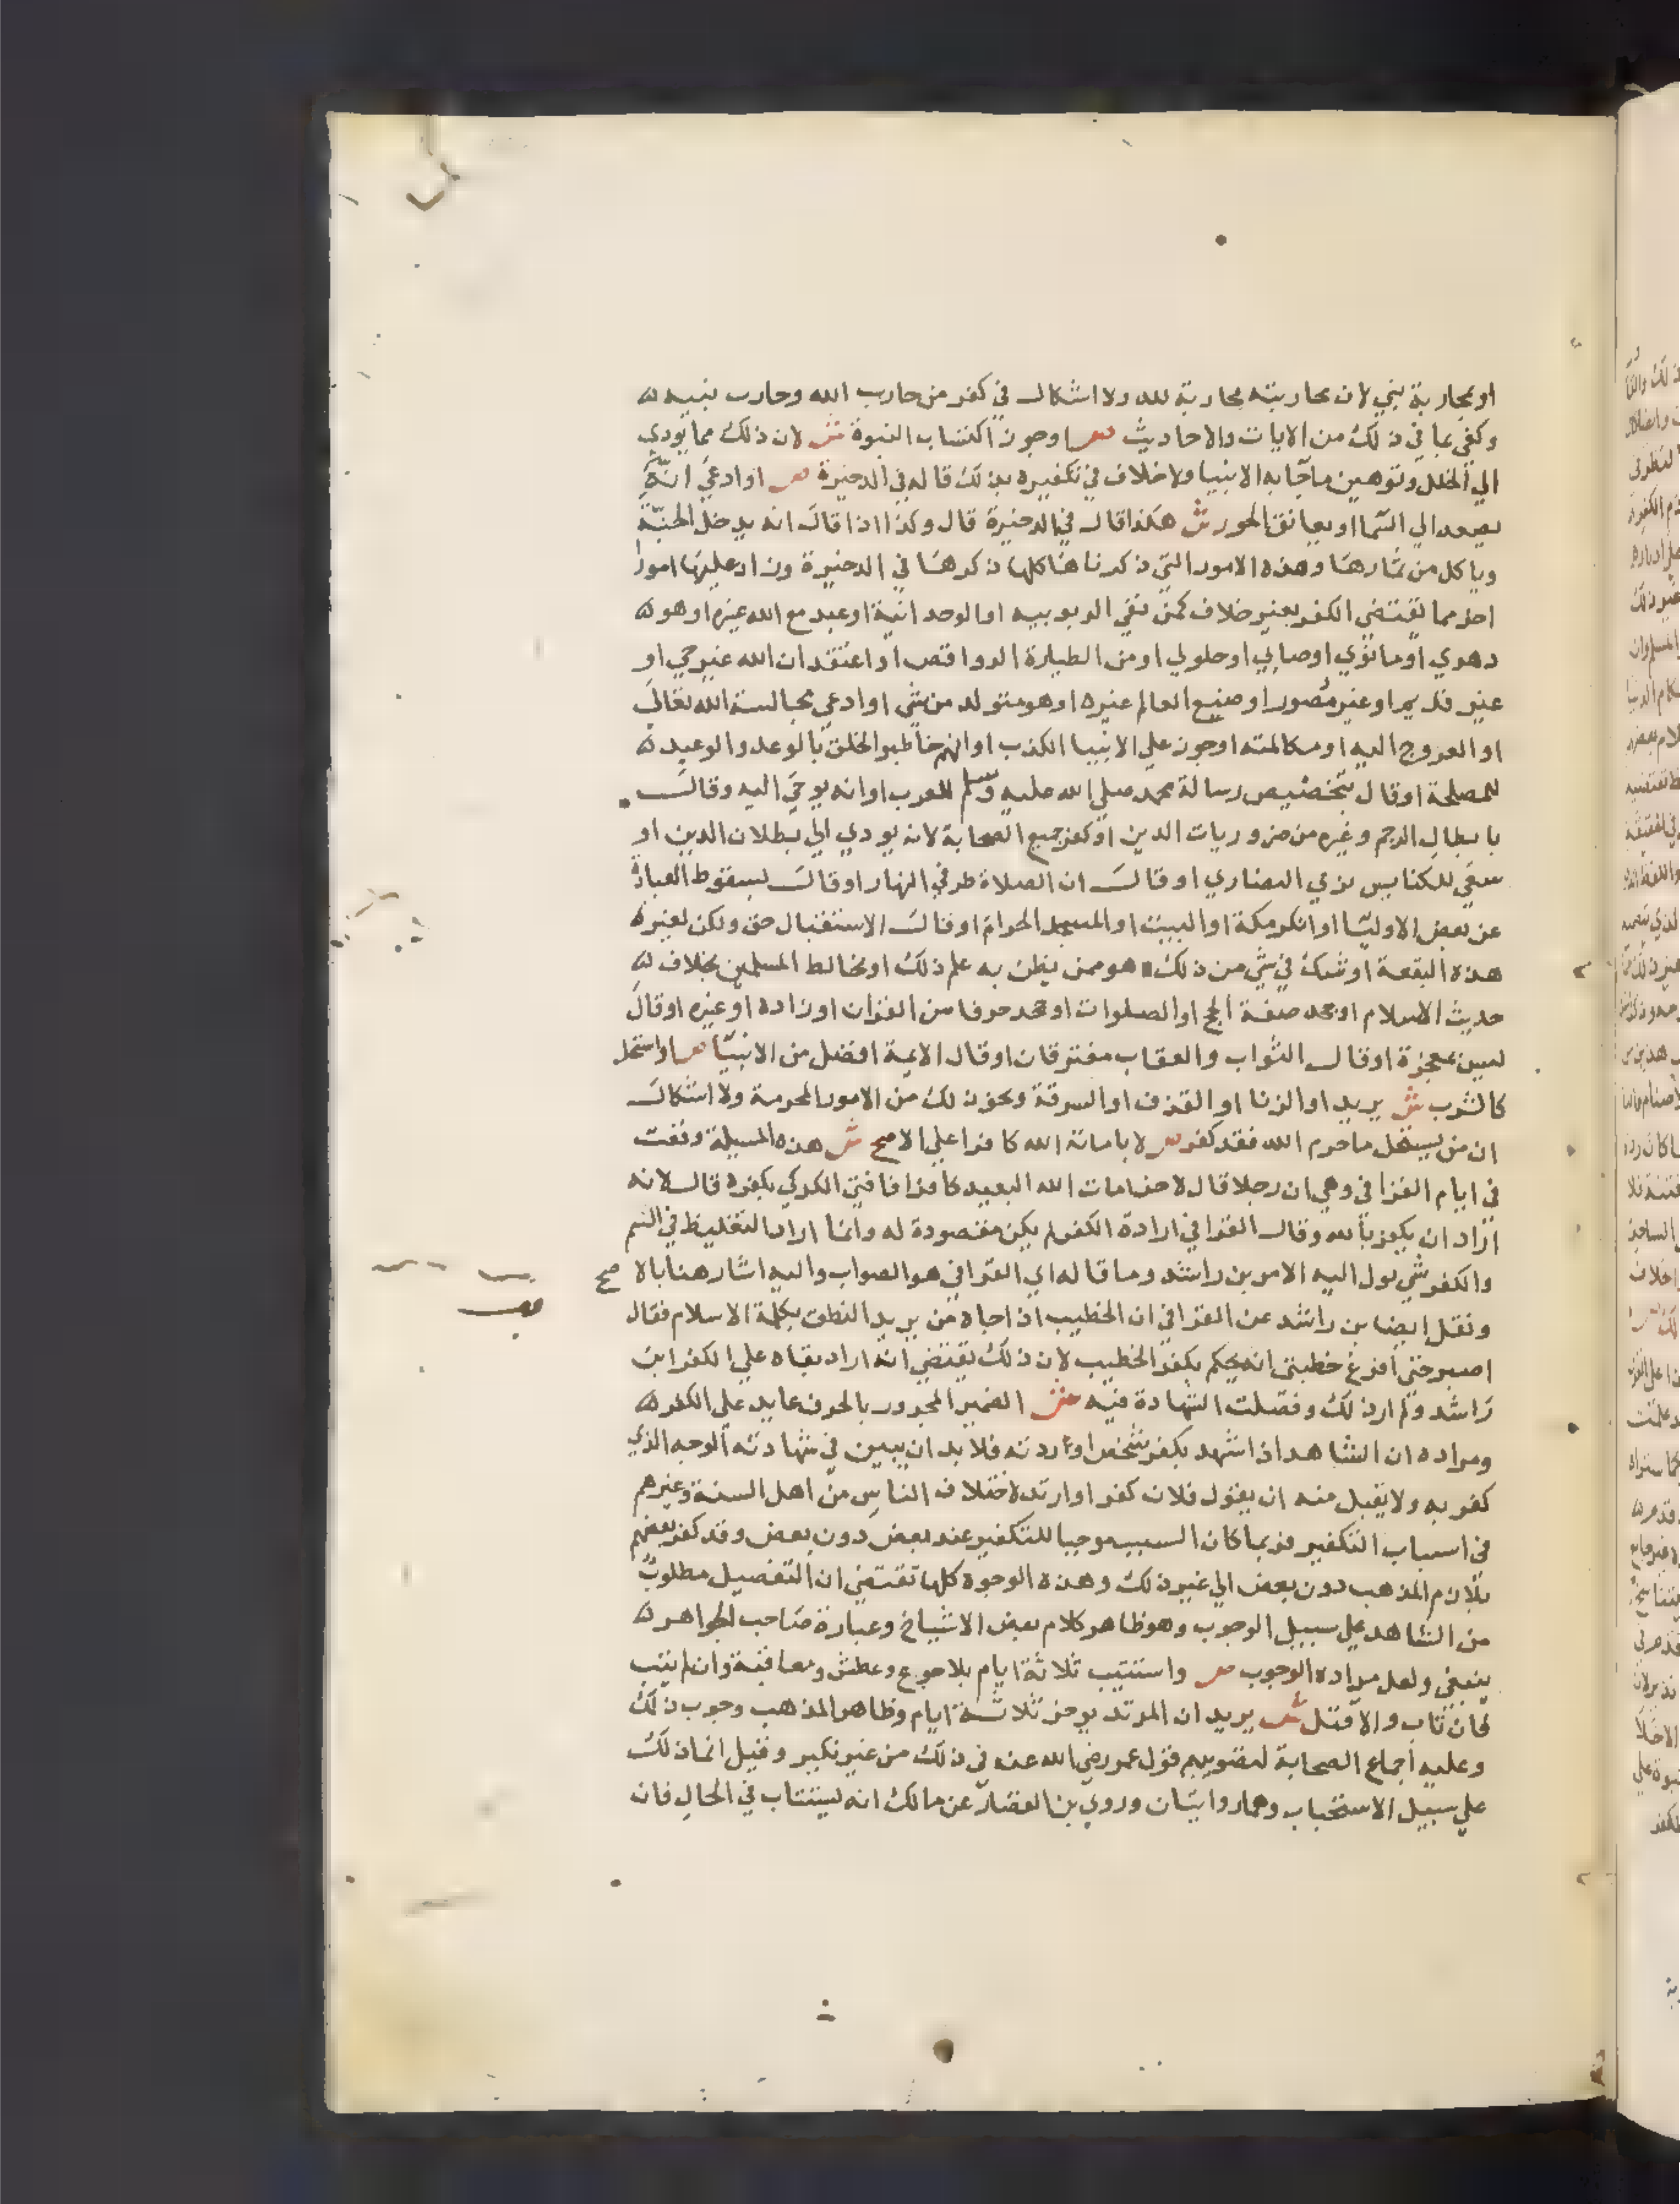 او بمحاربة نبي لان محاربته محاربة لله ولا اشكال في كفر من حارب الله وحارب نبيه
وكفي بما في ذلك من الايات والاحاديث ص او جوز اكتساب النبوة ش لان ذلك مما يودي
الي الخلل وتوهين ما جا به الانبيا ولا خلاف في تكفيره بذلك قاله في الدخيرة ص او ادعي انه
يصعد الي السما او يعانق الحور ش هكذا قال في الدخيرة قال وكذا اذا قال انه يدخل الجنة
وياكل من ثمارها وهذه الامور التي ذكرناها كلها ذكرها في الدخيرة وزاد عليها امورا
اخر مما تقتضي الكفر بغير خلاف كمن نفي الربوبيه او الوحدانية او عبد مع الله غيره او هو
دهري او مانوي او صابي او حلولي او من الطيارة الروافض او اعتقد ان الله غير حي او
غير قديم او غير مصور او صنيع العالم غيره او هو متولد من شي او ادعي مجالسة الله تعالي
او العروج اليه او مكالمته او جوز علي الانبيا الكذب او انهم خاطبوا الخلق بالوعد والوعيد
للمصلحة او قال بتخصيص رسالة محمد صلي الله عليه وسلم للعرب او انه يوحي اليه وقال
بابطال الرجم وغيره من ضروريات الدين او كفر جميع الصحابة لانه يودي الي بطلان الدين او
سعي للكنايس بزي النصاري او قال ان الصلاة طرفي النهار او قال بسقوط العبادة
عن بعض الاوليا او انكر مكة او البيت او المسجد الحرام او قال الاستقبال حق ولكن لغيره
هذه البقعة او شك في شي من ذلك هو ممن يظن به علم ذلك او يخالط المسلمين بخلاف
حديث الاسلام او جحد صفة الحج او الصلوات او جحد حرفا من القران او زاده او غيره او قال
ليس معجزة او قال الثواب والعقاب مفترقان او قال الايمة افضل من الانبيا ص او استحل
كالشرب ش يريد او الزنا او القذف او السرقة ونحو ذلك من الامور المحرمة ولا اشكال
ان من يستحل ما حرم الله فقد كفر ص لا باماته الله كافرا علي الاصح ش هذه المسيلة وقعت
في ايام القرافي وهي ان رجلا قال لاخر امات الله البعيد كافرا فافتي الكركي بكفره قال لانه
اراد ان يكفر بالله وقال القرافي ارادة الكفر لم يكن مقصودة له وانما اراد التغليظ في الشتم
والكفر شي يول اليه الامر بن راشد وما قاله اي القرافي هو الصواب واليه اشار هنا بالاصح
ونقل ايضا بن راشد عن القرافي ان الخطيب اذا جاه من يريد النطق بكلمة الاسلام فقال
اصبر حتي افرغ خطبتي انه يحكم بكفر الخطيب لان ذلك يقتضي انه اراد بقاه علي الكفر ابن
راشد ولم ار ذلك وفصلت الشهادة فيه ش الضمير المجرور بالحرف عايد علي الكفر
ومراده ان الشاهد اذا شهد بكفر شخص او ردته فلا بد ان يبين في شهادته الوجه الذي
كفر به ولا يقبل منه ان يقول فلان كفر او ارتد لاختلاف الناس من اهل السنة وغيرهم
في اسباب التكفير فربما كان السبب موجبا للتكفير عند بعض دون بعض وقد كفر بعضهم
بلازم المذهب دون بعض الي غير ذلك وهذه الوجوه كلها تقتضي ان التفصيل مطلوب
من الشاهد علي سبيل الوجوب وهو ظاهر كلام بعض الاشياخ وعبارة صاحب الجواهر
ينبغي ولعل مراده الوجوب ص واستتيب ثلاثة ايام بلا جوع وعطش ومعاقبة وان لم يتب
فان تاب والا قتل ش يريد ان المرتد يوخر ثلاثة ايام وظاهر المذهب وجوب ذلك
وعليه اجماع الصحابة لتصويبهم قول عمر رضي الله عنه في ذلك من غير نكير وقيل انما ذلك
علي سبيل الاستحباب وهما روايتان وروي بن القصار عن مالك انه يستتاب في الحال فان